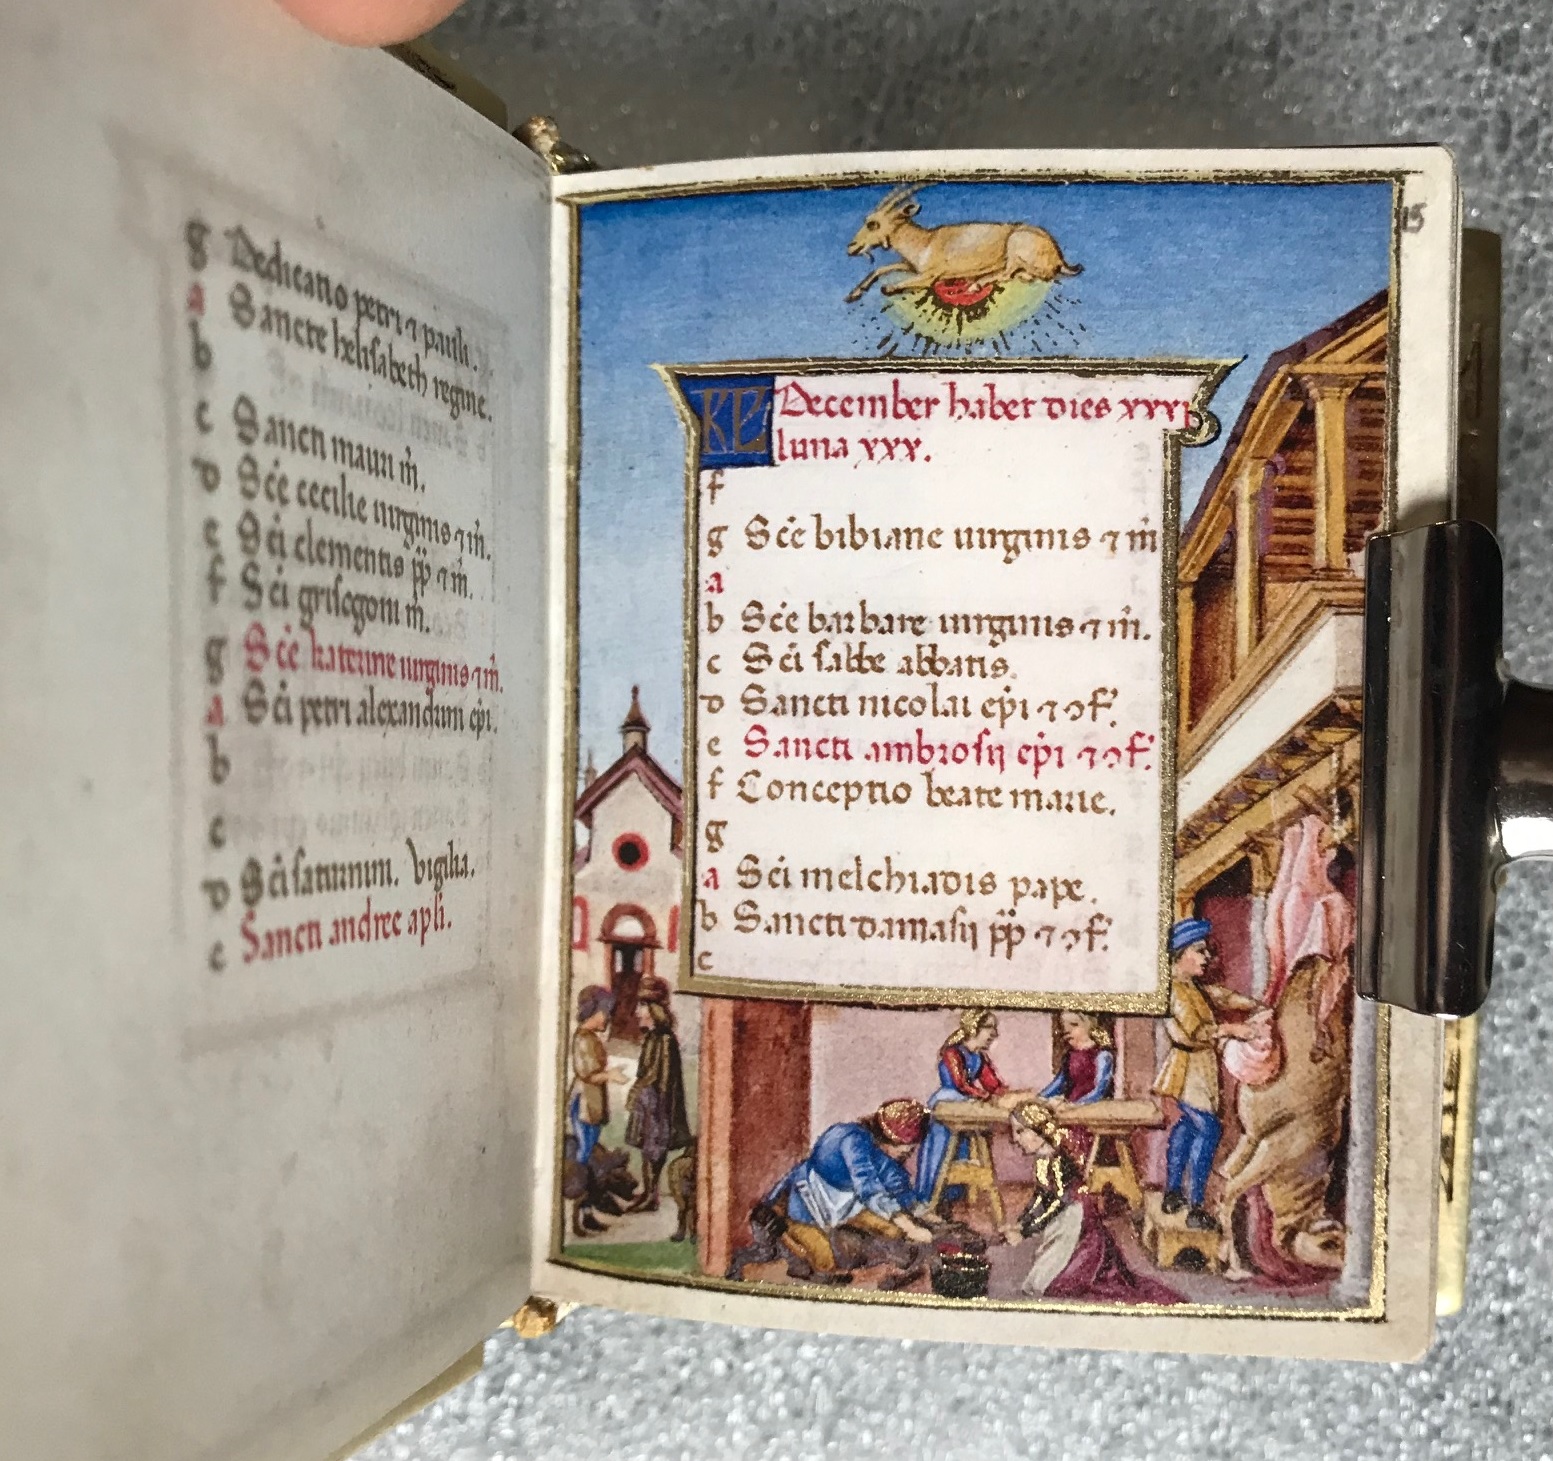 g Dedicatio petri ⁊ pauli.
a Sancte helisabeth regine.
b
c Sancti mauri m̄.
d Scē cecilie uirginis ⁊ m̄.
e Sci clementis pp̄ ⁊ m̄.
f Sci grisogoni m̄.
g Scē katerine uirginis ⁊ m̄.
a Sci petri alexandrini ep̄i.
b
c
d Sci saturnini. Vigilia.
e Sancti andree apl̄i.
15
KL December habet dies xxxi
luna xxx.
f
g Scē bibiane uirginis ⁊ m̄
a
b Scē barbare uirginis ⁊ m̄.
c Sci sabbe abbatis.
d Sancti nicolai ep̄i ⁊ ↄf.
e Sancti ambrosij ep̄i ⁊ ↄf.
f Conceptio beate marie.
g
a Sci melchiadis pape.
b Sancti damasij pp̄ ⁊ ↄf.
c